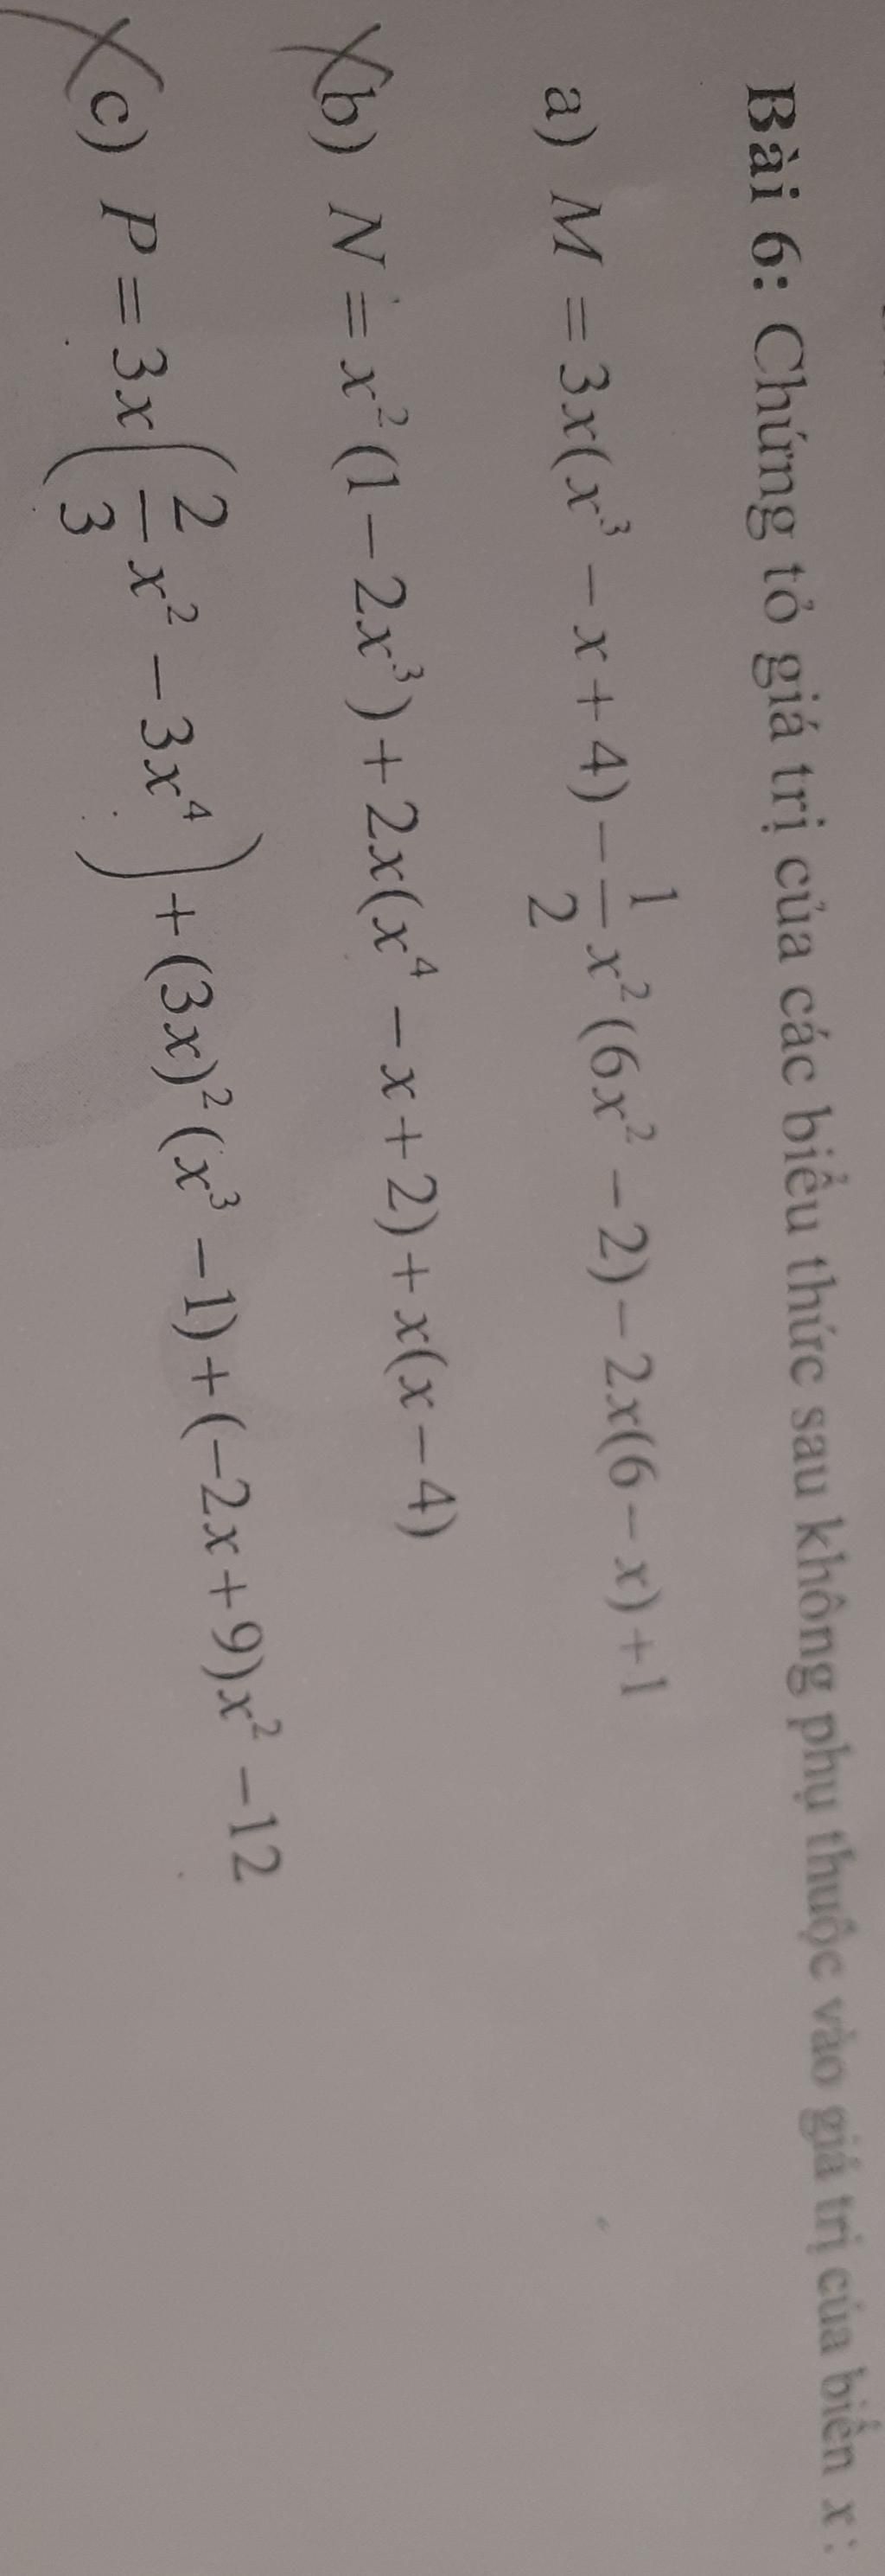 Bài 6: Chứng tỏ giá trị của các biểu thức sau không phụ thuộc vào giá trị của biến x:
a) M = 3x(x³ − x + 4) − 1/2 x²(6x² − 2) − 2x(6 − x) + 1
b) N = x²(1 − 2x³) + 2x(x⁴ − x + 2) + x(x − 4)
c) P = 3x(2/3 x² − 3x⁴) + (3x)²(x³ − 1) + (−2x + 9)x² − 12